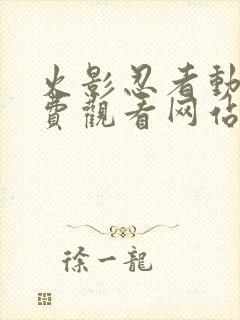 火影忍者動
費觀看网佔
徐一龍